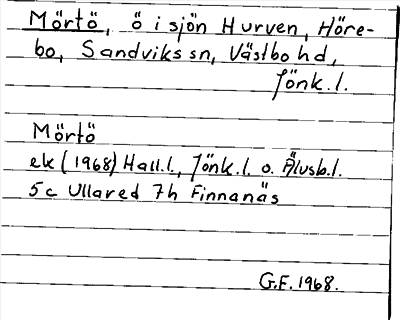 Mörtö, ö i sjön Hurven, Höre-
bo, Sandviks sn, Västbo hd,
Jönk.l.
Mörtö
ek (1968) Hall.l., Jönk.l. o. Älvsb.l.
5c Ullared 7h Finnanäs
G.F. 1968.